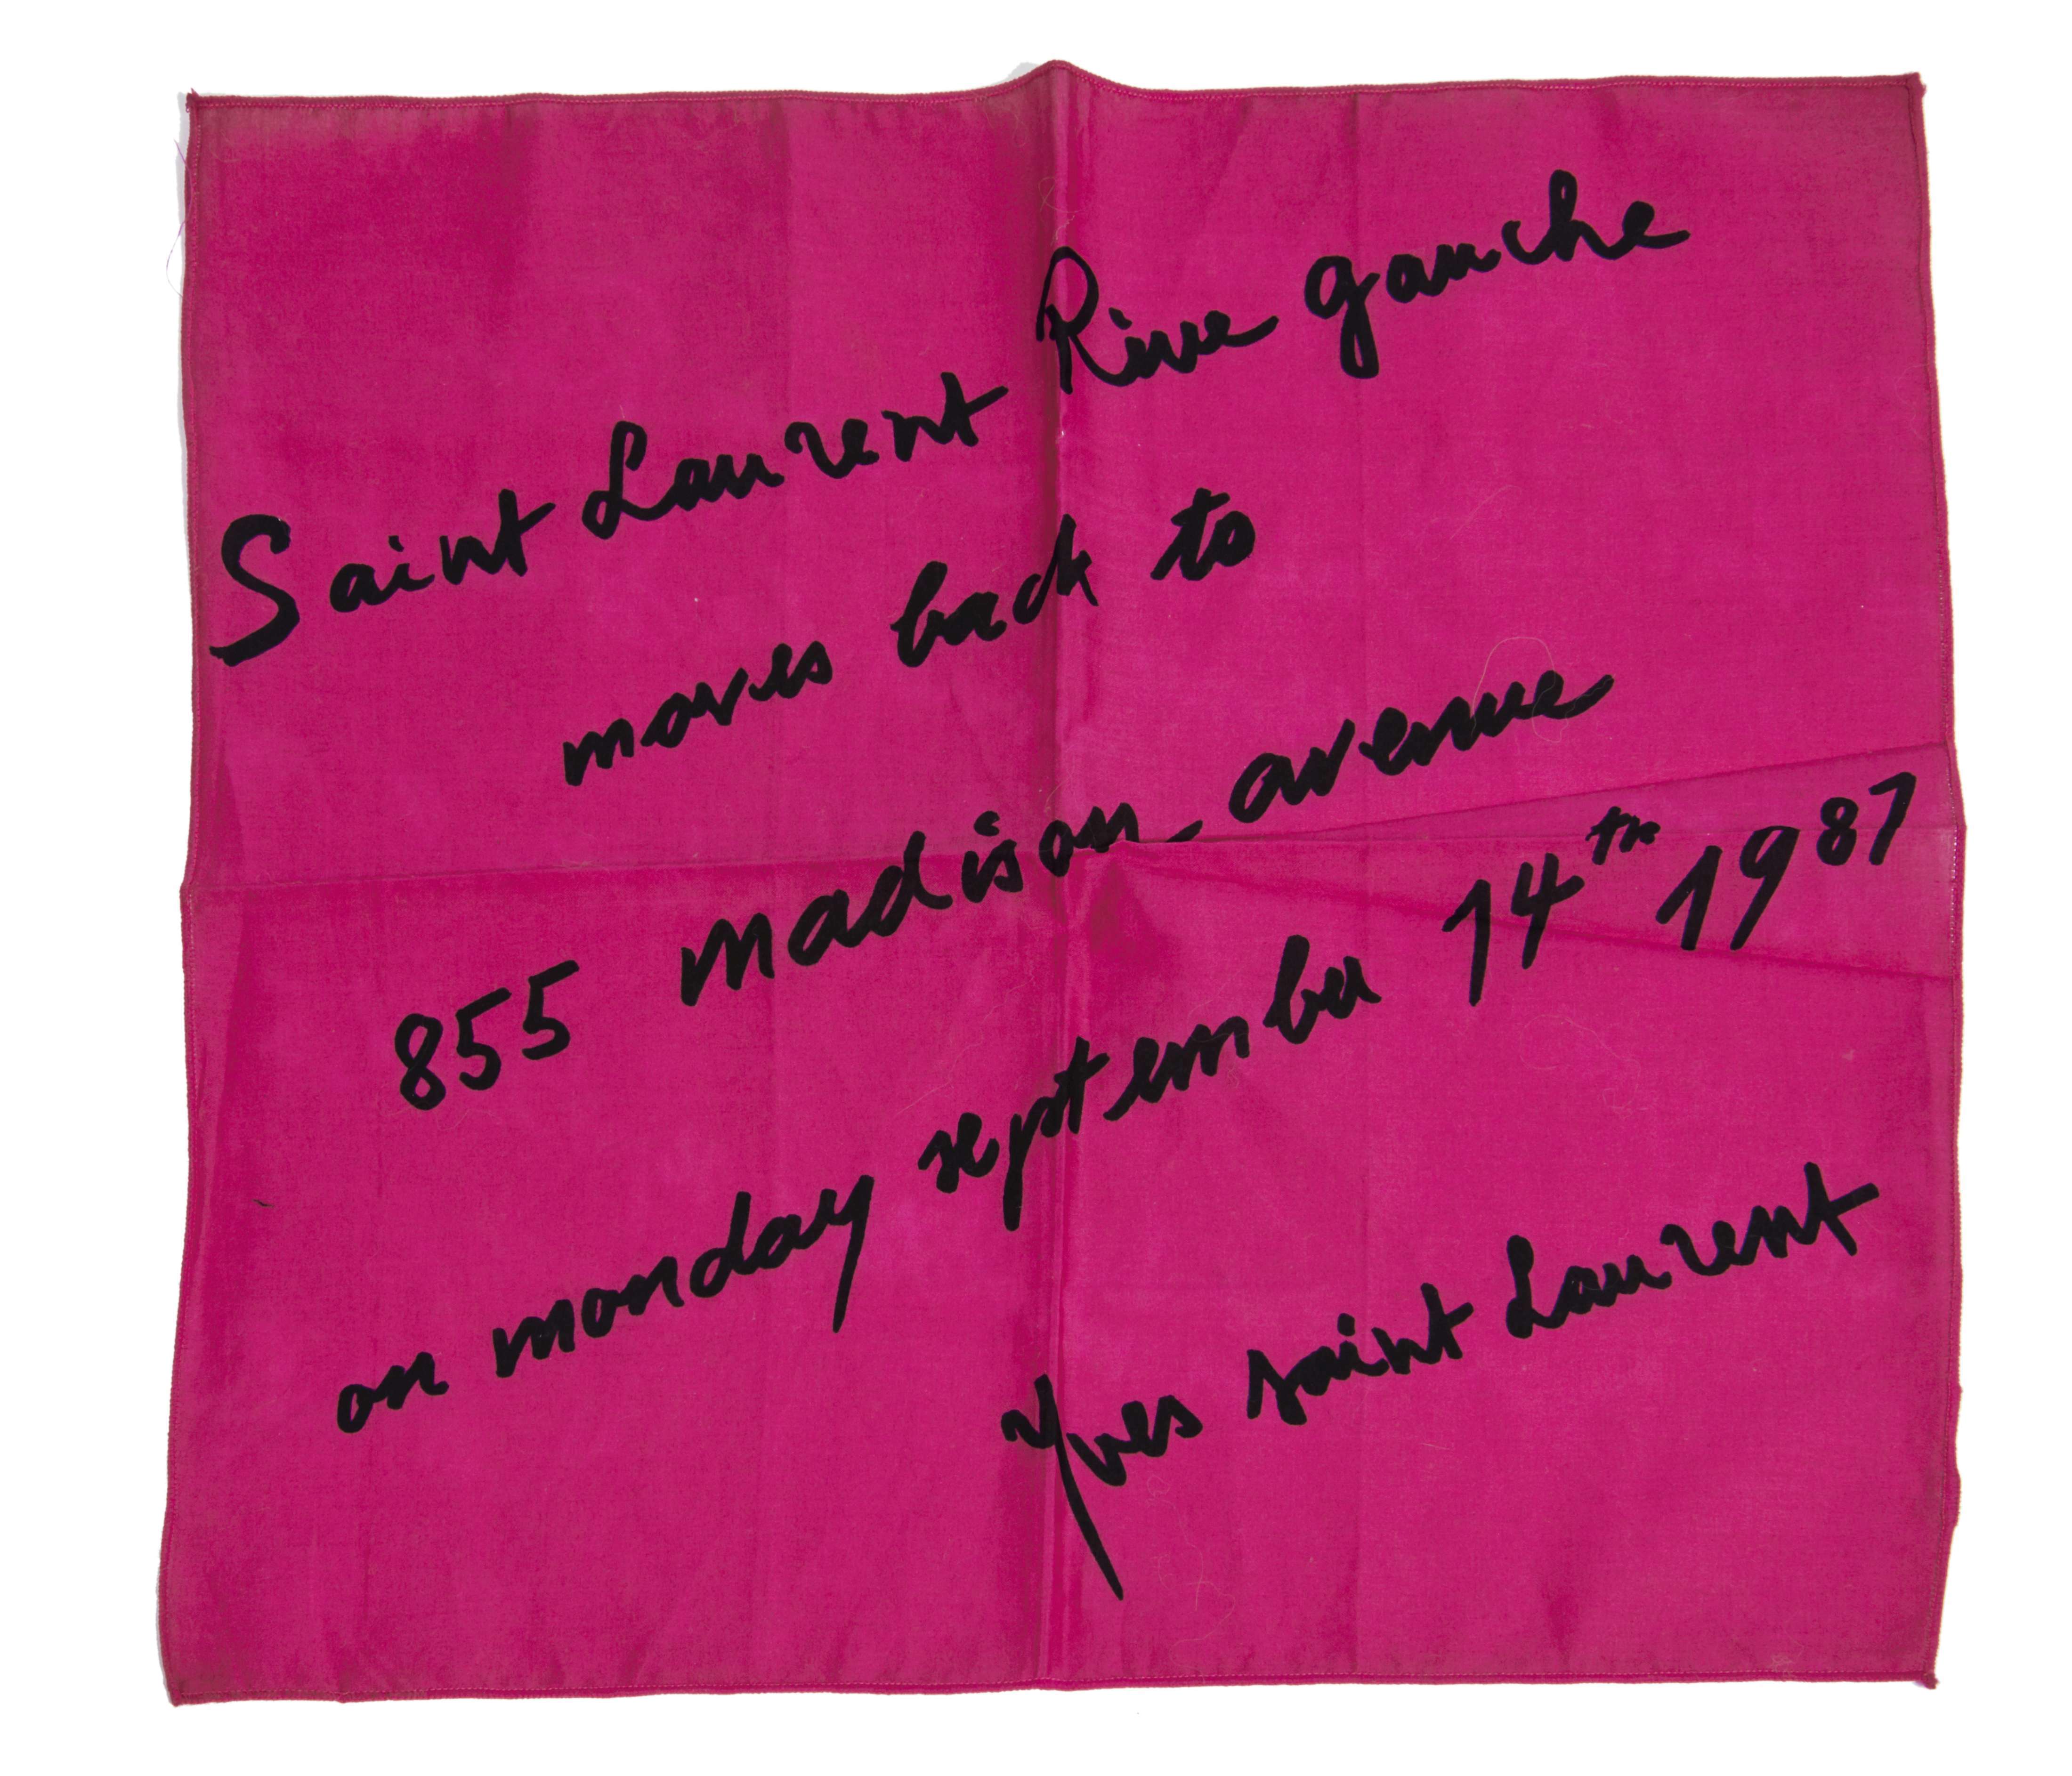 Saint Laurent Rive gauche
moves back to
855 madison avenue
on monday september 14th 1987
Yves saint Laurent